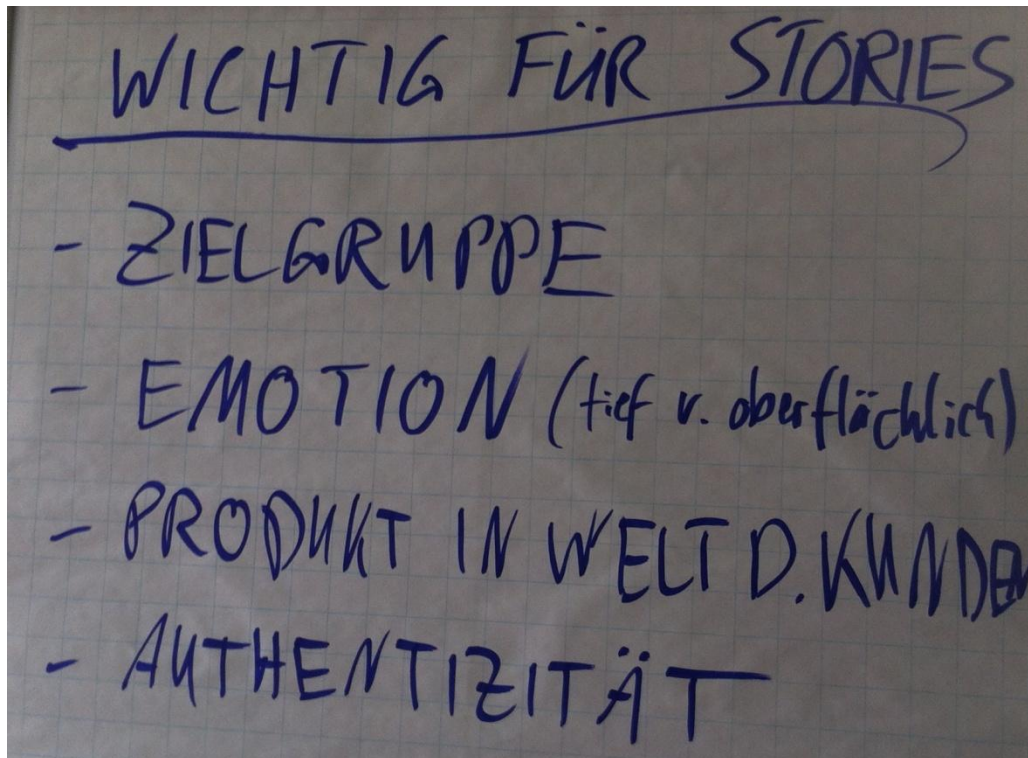 WICHTIG FÜR STORIES
- ZIELGRUPPE
- EMOTION (tief v. oberflächlich)
- PRODUKT IN WELT D. KUNDEN
- AUTHENTIZITÄT